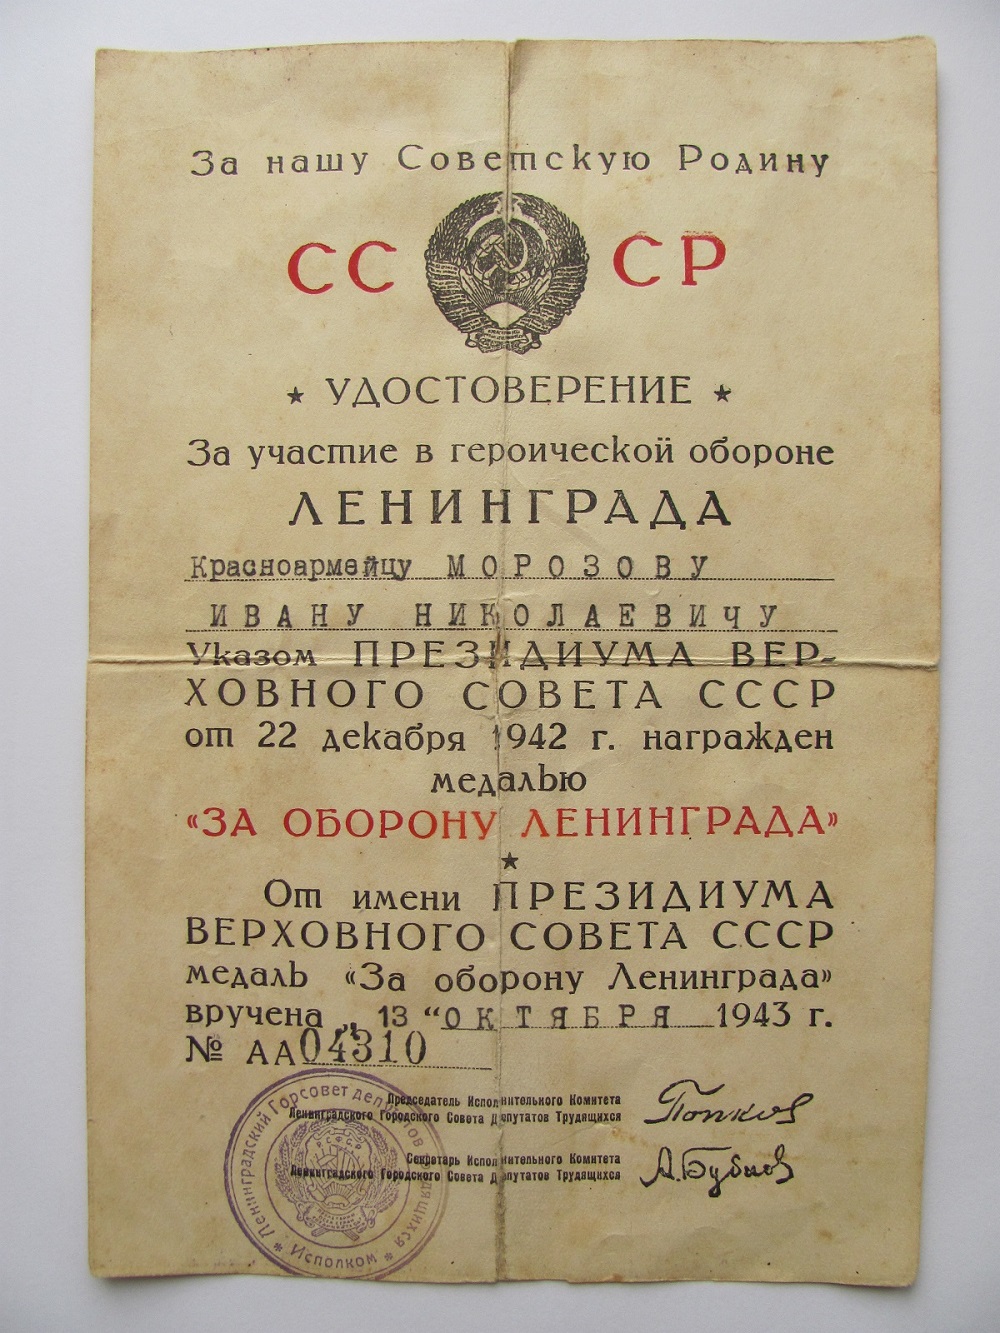 За нашу Советскую Родину
СССР
★ УДОСТОВЕРЕНИЕ ★
За участие в героической обороне
ЛЕНИНГРАДА
Красноармейцу МОРОЗОВУ
ИВАНУ НИКОЛАЕВИЧУ
Указом ПРЕЗИДИУМА ВЕР-
ХОВНОГО СОВЕТА СССР
от 22 декабря 1942 г. награжден
медалью
«ЗА ОБОРОНУ ЛЕНИНГРАДА»
★
От имени ПРЕЗИДИУМА
ВЕРХОВНОГО СОВЕТА СССР
медаль «За оборону Ленинграда»
вручена „ 13 “ ОКТЯБРЯ 1943 г.
№ АА04310
Председатель Исполнительного Комитета
Ленинградского Городского Совета Депутатов Трудящихся
Попков
Секретарь Исполнительного Комитета
Ленинградского Городского Совета Депутатов Трудящихся
А.Бубнов
Ленинградский Горсовет депутатов трудящихся
* Исполком *
РСФСР